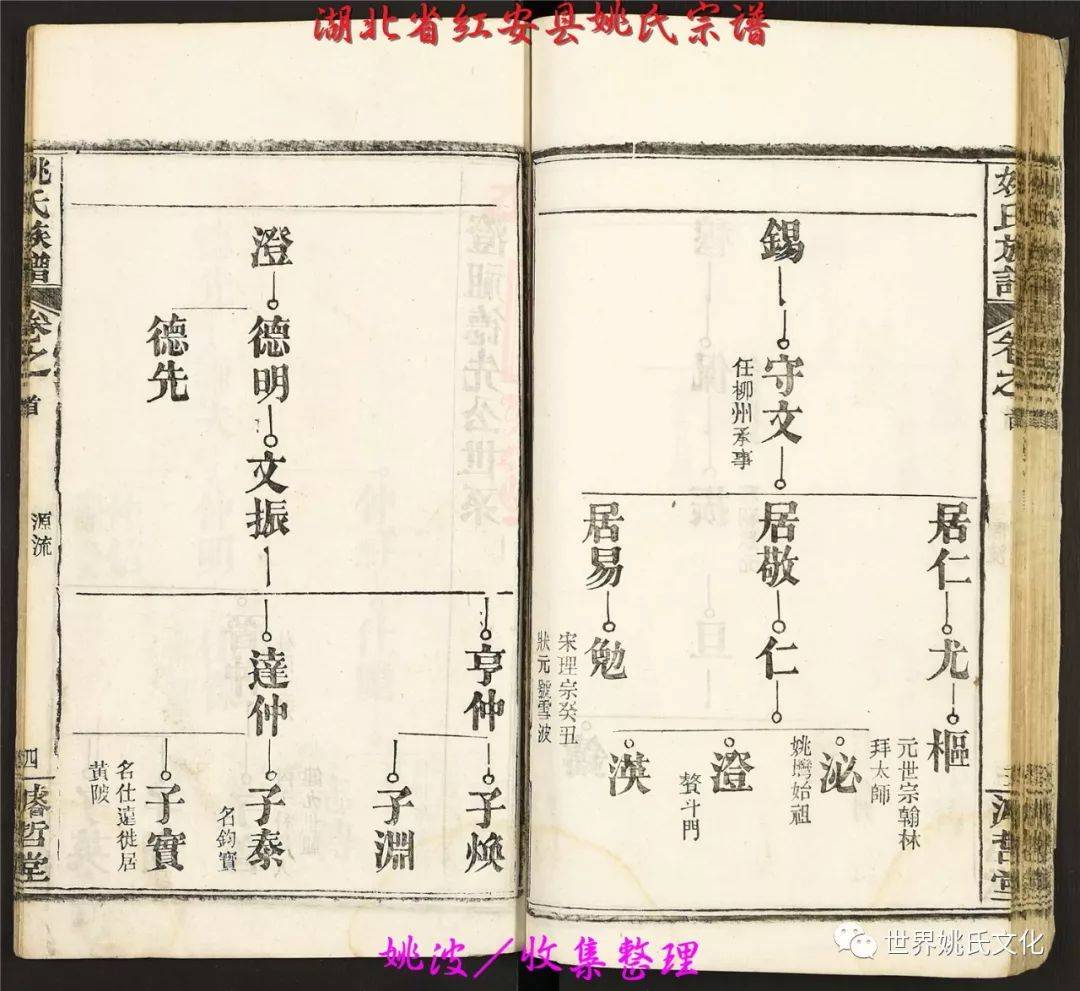 湖北省红安县姚氏宗谱
姚氏族譜
卷之
首
三
濬哲堂
錫
守文
任柳州承事
居仁
居敬
居易
尤
仁
勉
宋理宗癸丑
狀元號雪波
樞
元世宗翰林
拜太師
泌
姚塆始祖
澄
贅斗門
漠
澄
德明
德先
文振
亨仲
達仲
子煥
子淵
子泰
名鈞寶
子實
名仕遠徙居
黃陂
姚氏族譜
卷之
首
源流
四
濬哲堂
姚波／收集整理
世界姚氏文化